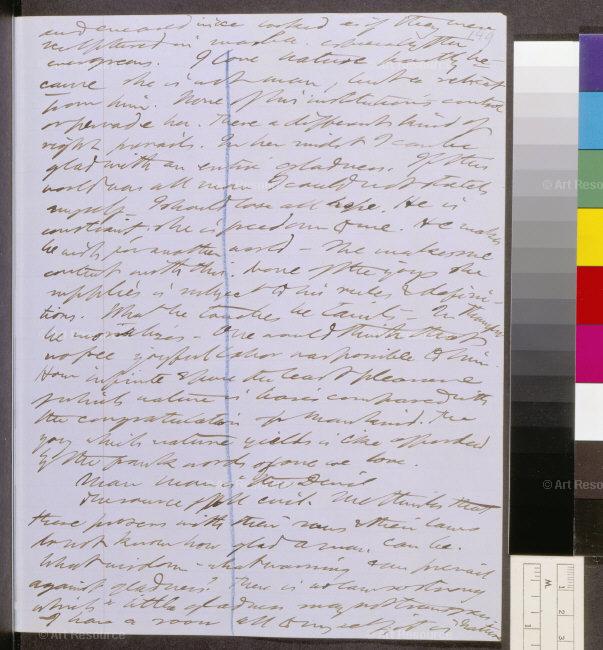 and encased in ice looked as if they were
sculptured in marble. especially the
evergreens. I love nature partly be-
cause she is not man, but a retreat
from him. None of his institutions control
or pervade her. Here a different kind of
right prevails. In her midst I can be
glad with an entire gladness. If this
world was all man I could not stretch
myself— I should lose all hope. He is
constraint; she is freedom to me. He makes
me wish for another world— She makes me
content with this. None of the joys she
supplies is subject to his rules & defini-
tions. What he touches he taints— In thought
he moralizes— One would think that
no free joyful labor was possible to him.
How infinite & pure the least pleasure
of which nature is basis compared with
the congratulation of mankind. The
joy which nature yields is like afforded
by the frank words of one we love.
Man man is the Devil
The source of all evil. Methinks that
these prosers with their saws & their laws
do not know how glad a man can be.
What wisdom— what warning can prevail
against gladness? There is no law so strong
which a little gladness may not transgress.
I have a room all to myself it is nature
149
Art Resource
Art Resource
Art Resource
Art Resource
M
1
2
3